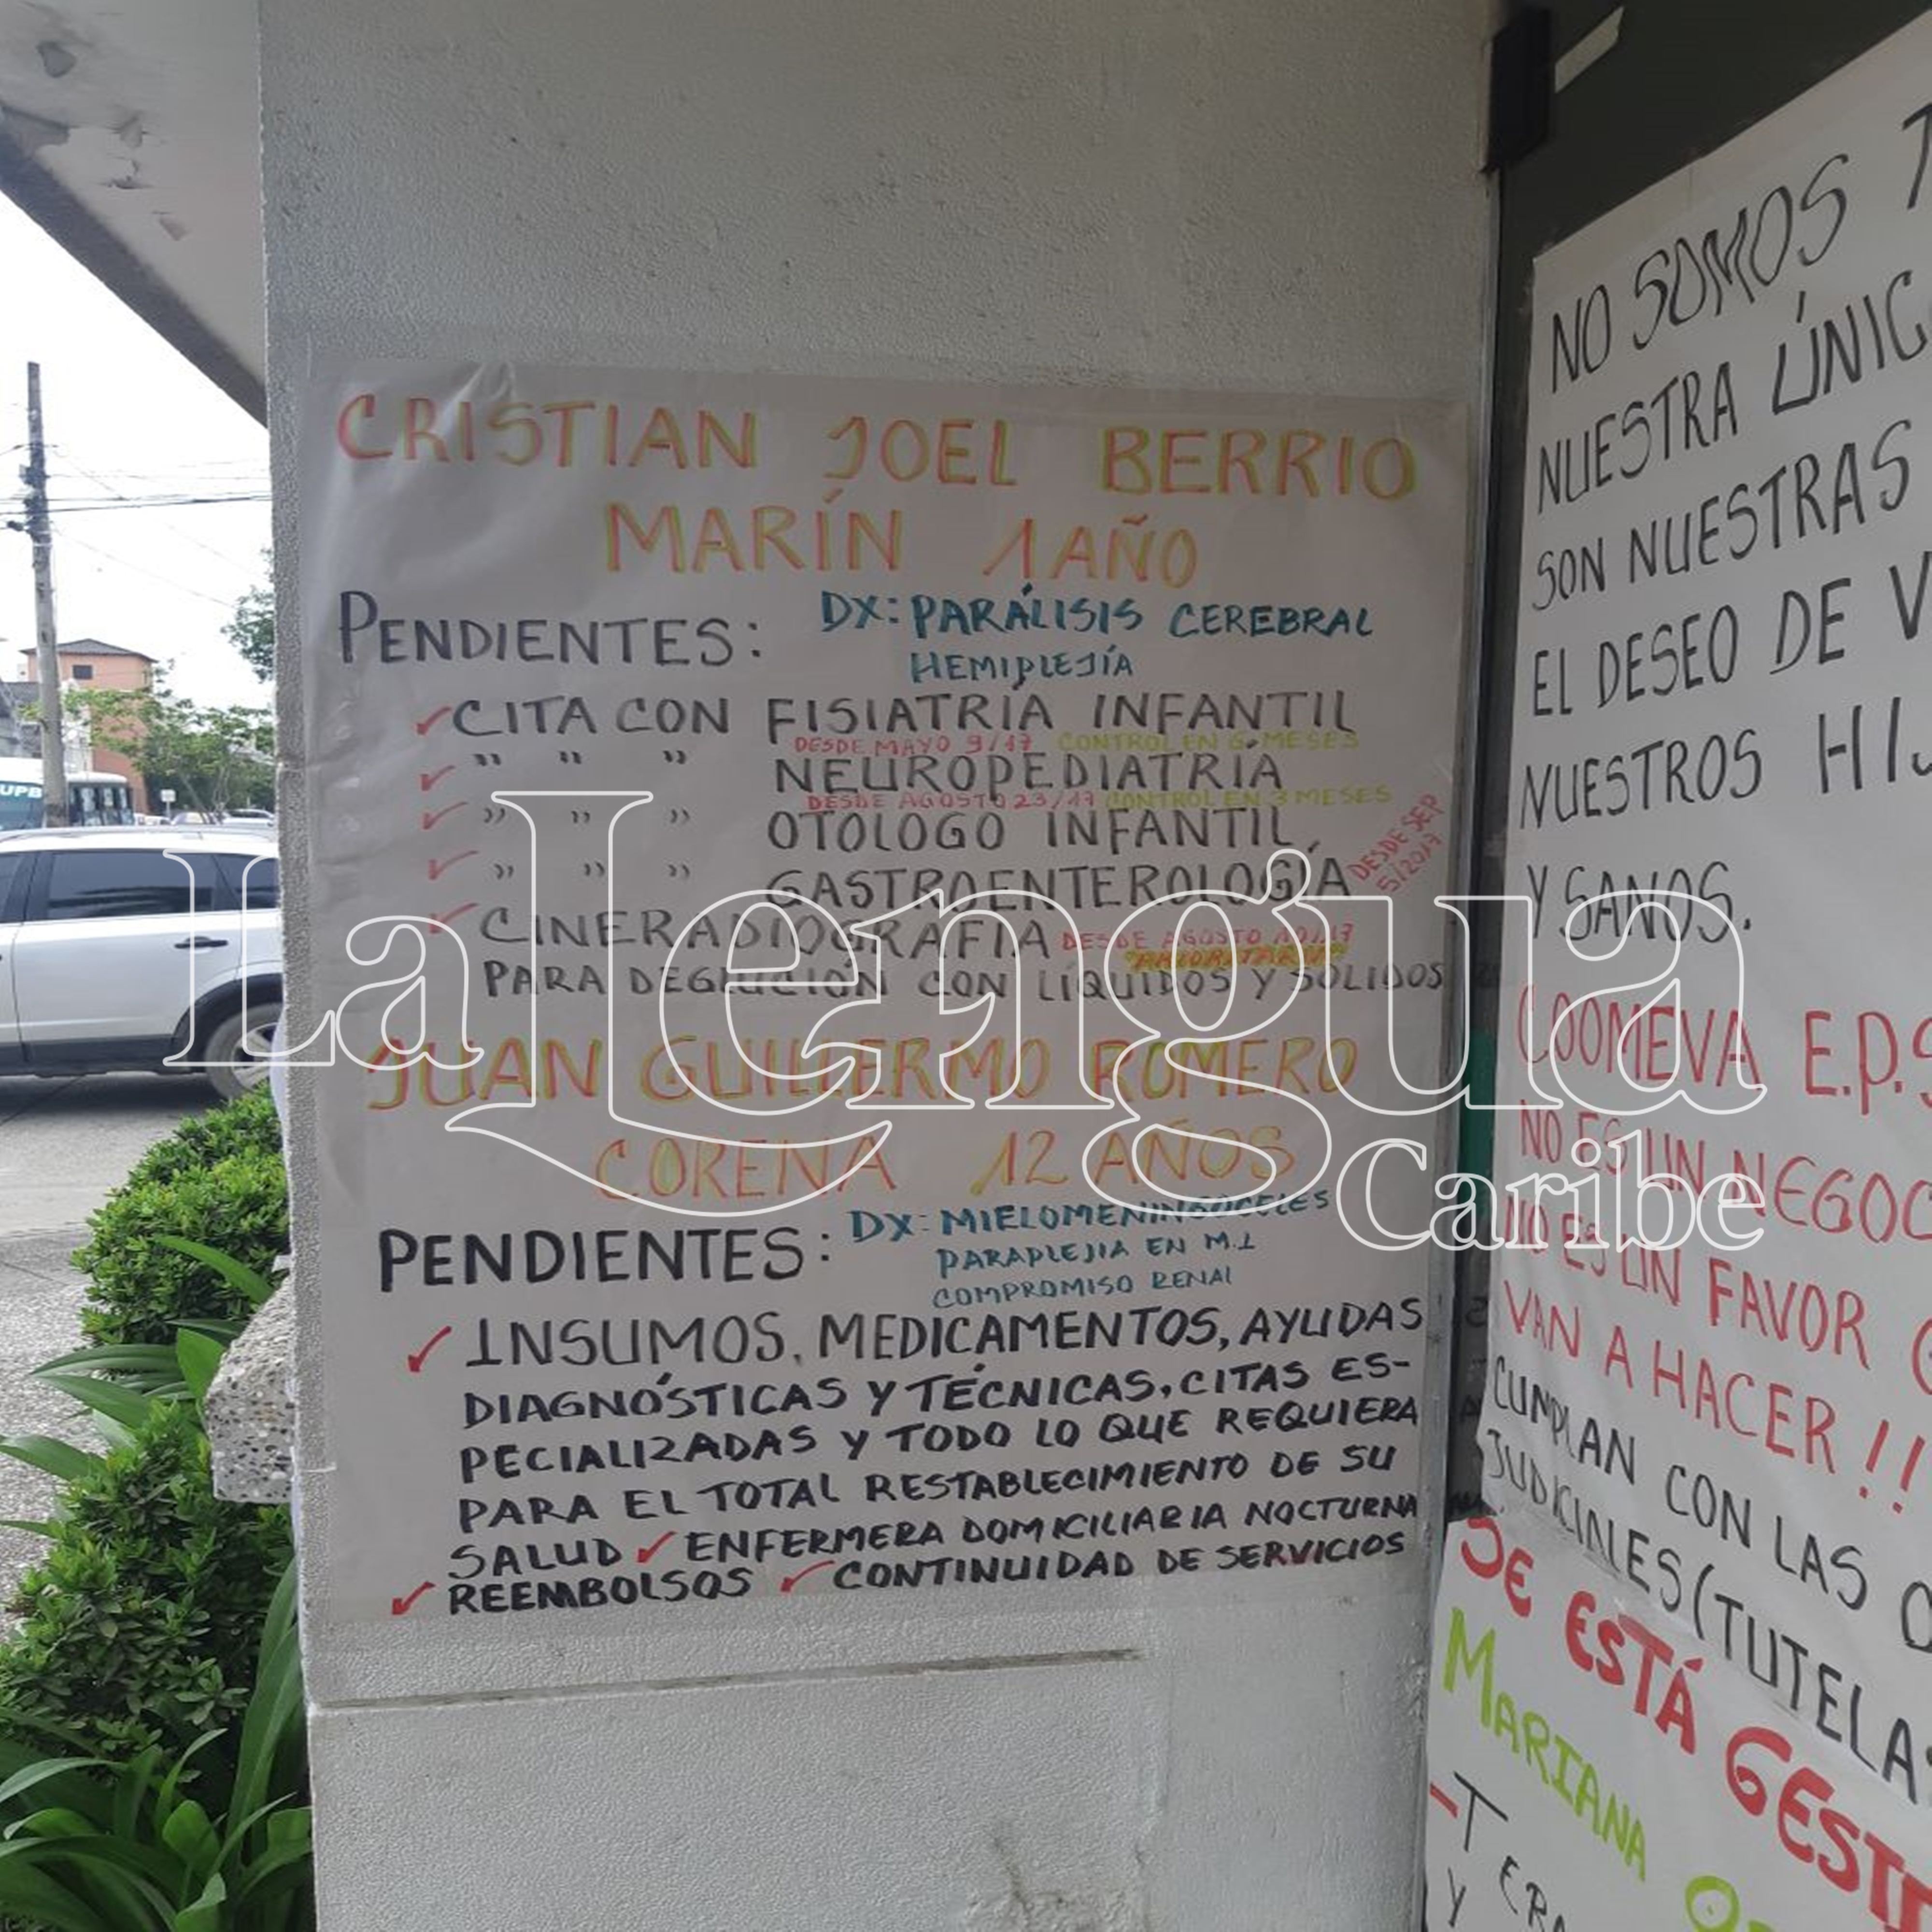 CRISTIAN JOEL BERRIO
MARÍN 1 AÑO
PENDIENTES: DX: PARÁLISIS CEREBRAL
HEMIPLEJÍA
✓ CITA CON FISIATRIA INFANTIL
DESDE MAYO 9/17 CONTROL EN 6 MESES
✓ " " " NEUROPEDIATRIA
DESDE AGOSTO 23/17 CONTROL EN 3 MESES
✓ " " " OTOLOGO INFANTIL
✓ " " " GASTROENTEROLOGÍA
DESDE SEP
5/2017
✓ CINERADIOGRAFIA DESDE AGOSTO
"PRIORITARIA"
PARA DEGLUCIÓN CON LÍQUIDOS Y SOLIDOS
JUAN GUILLERMO ROMERO
CORENA 12 AÑOS
PENDIENTES: DX: MIELOMENINGOCELES
PARAPLEJIA EN M.I
COMPROMISO RENAL
✓ INSUMOS, MEDICAMENTOS, AYUDAS
DIAGNÓSTICAS Y TÉCNICAS, CITAS ES-
PECIALIZADAS Y TODO LO QUE REQUIERA
PARA EL TOTAL RESTABLECIMIENTO DE SU
SALUD ✓ ENFERMERA DOMICILIARIA NOCTURNA
✓ REEMBOLSOS ✓ CONTINUIDAD DE SERVICIOS
NO SOMOS
NUESTRA ÚNIC
SON NUESTRAS
EL DESEO DE V
NUESTROS HIJ
Y SANOS.
COOMEVA E.P.S
NO ES UN NEGOC
NO ES UN FAVOR
VAN A HACER!!
CUMPLAN CON LAS O
JUDICIALES (TUTELA
SE ESTÁ GESTI
MARIANA O
-TERA
Y
UPB
La Lengua
Caribe